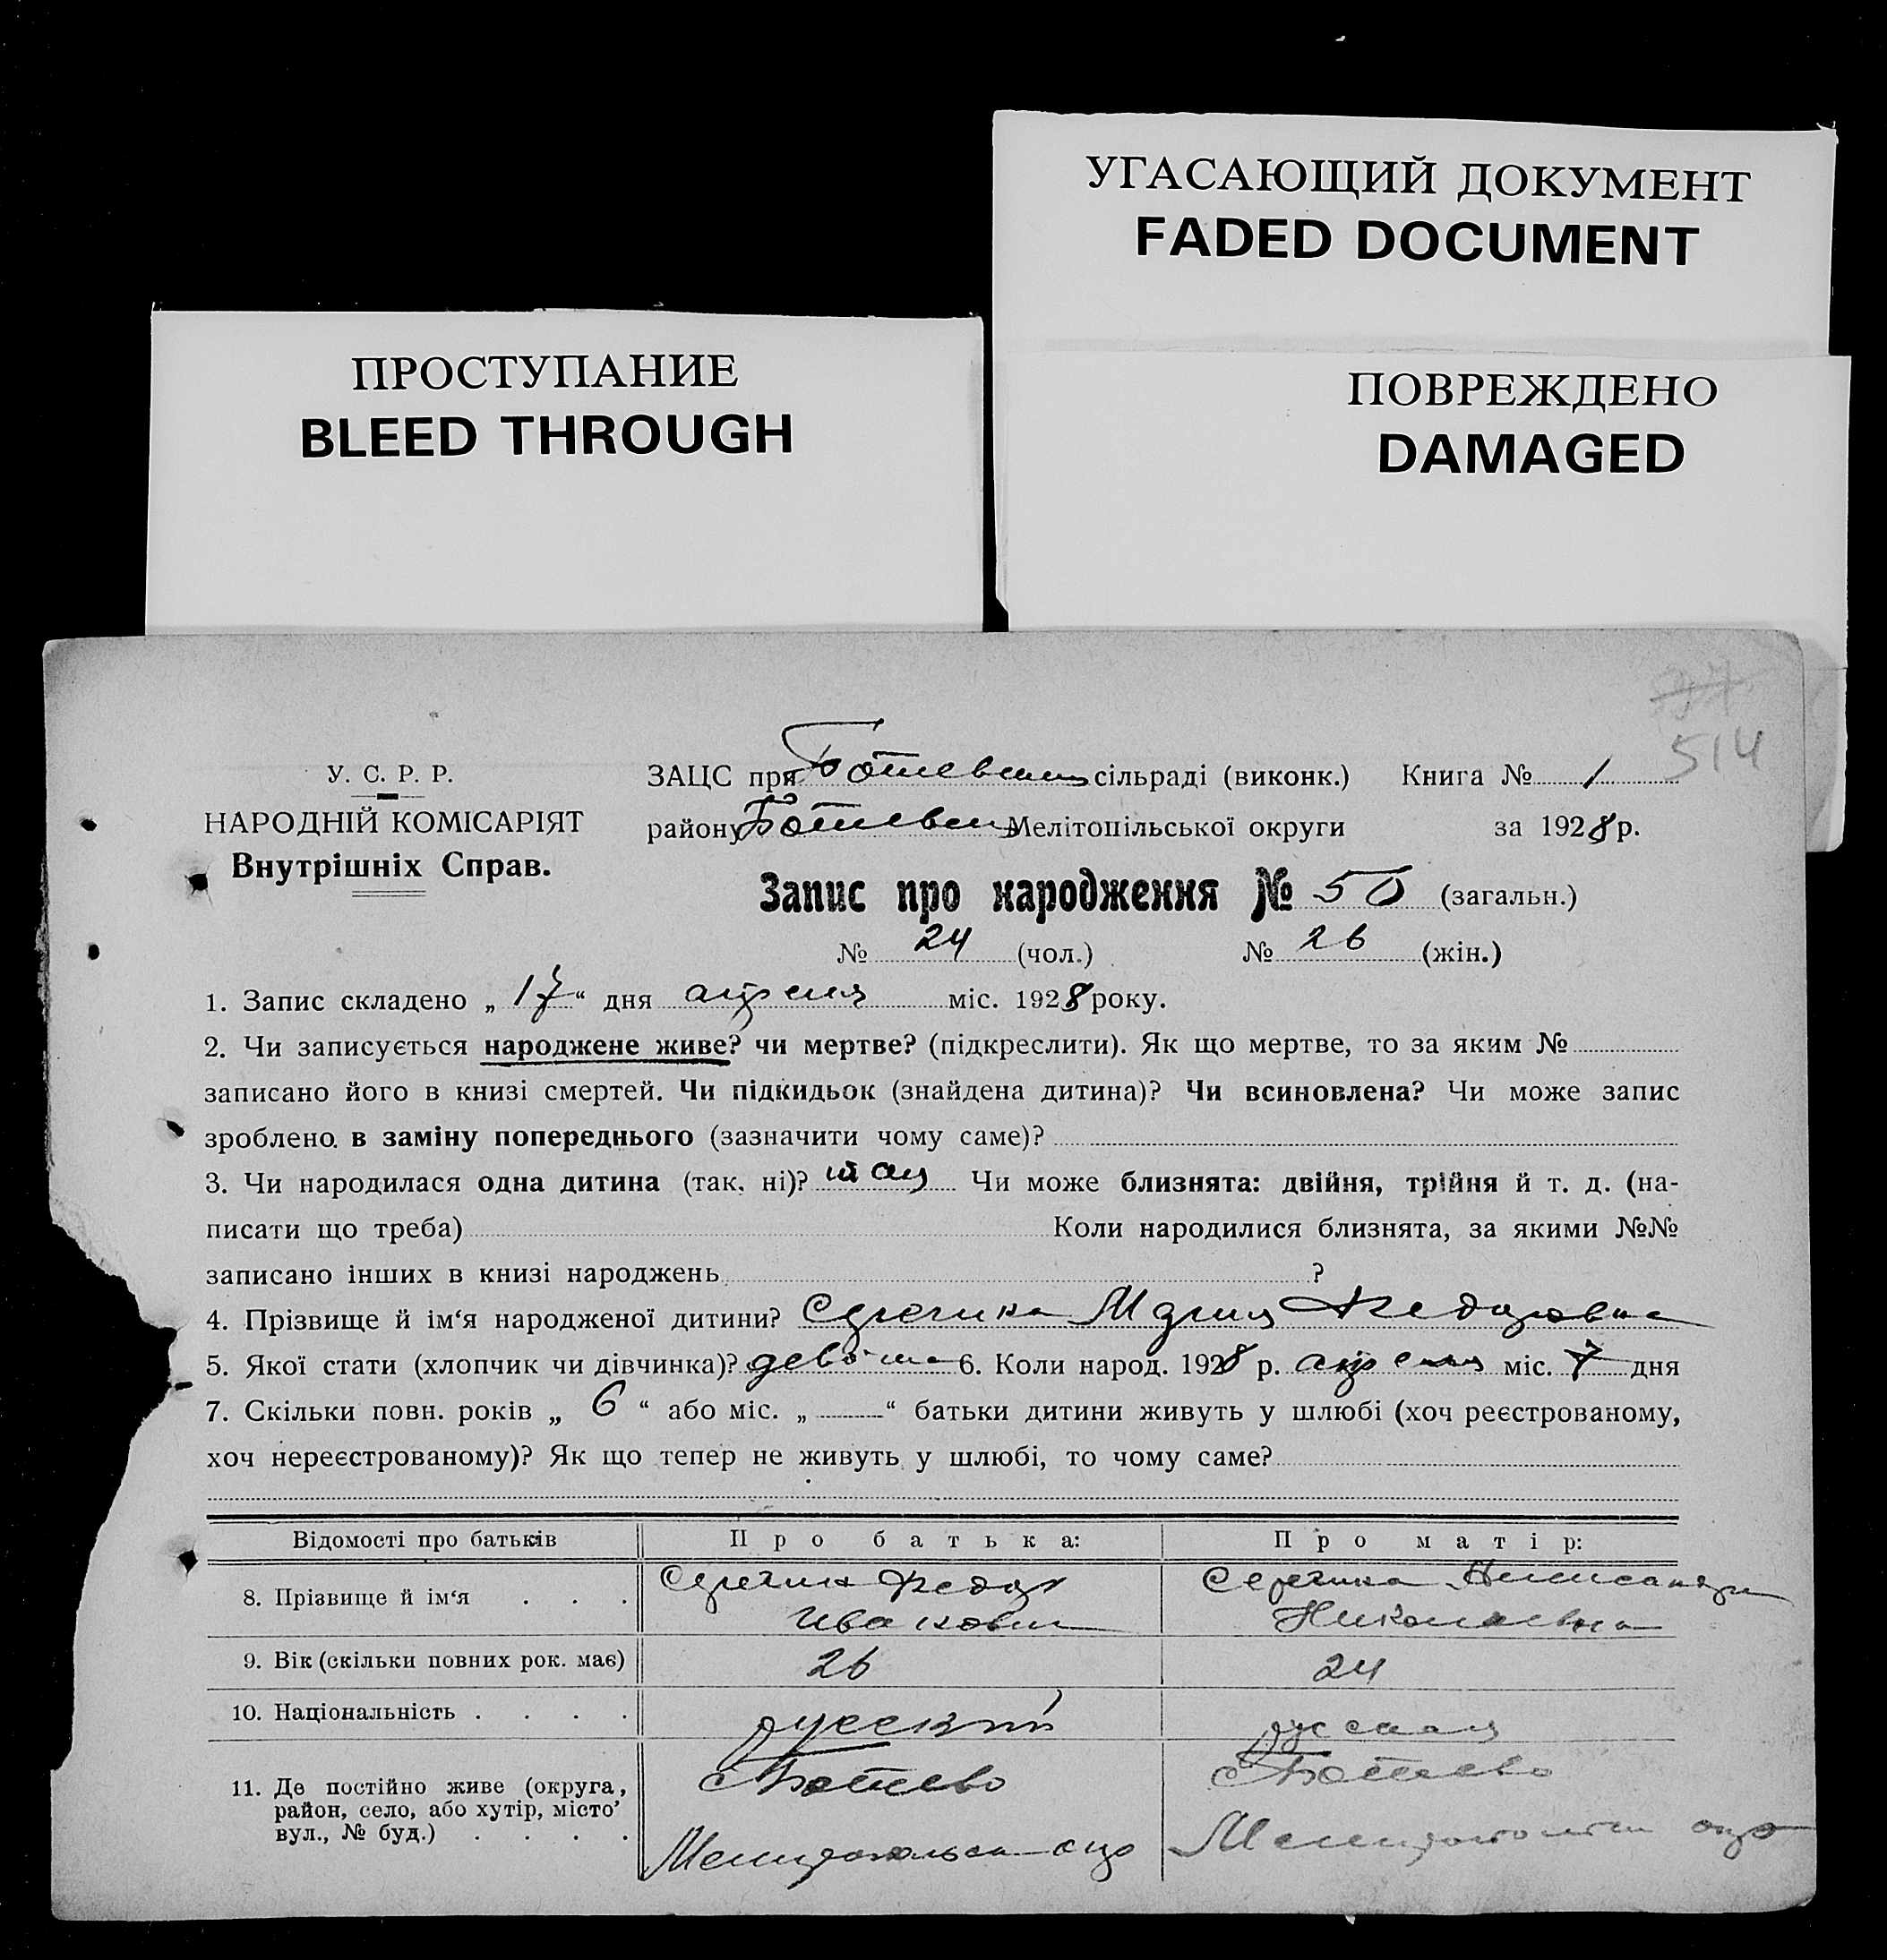 УГАСАЮЩИЙ ДОКУМЕНТ
FADED DOCUMENT
ПРОСТУПАНИЕ
BLEED THROUGH
ПОВРЕЖДЕНО
DAMAGED
514
У. С. Р. Р.
НАРОДНІЙ КОМІСАРІЯТ
Внутрішніх Справ.
ЗАЦС при Ботиевском сільраді (виконк.) Книга № 1
району Ботиевск Мелітопільської округи за 1928 р.
Запис про народження № 50 (загальн.)
№ 24 (чол.) № 26 (жін.)
1. Запис складено „ 17 “ дня апреля міс. 1928 року.
2. Чи записується народжене живе? чи мертве? (підкреслити). Як що мертве, то за яким №
записано його в книзі смертей. Чи підкидьок (знайдена дитина)? Чи всиновлена? Чи може запис
зроблено в заміну попереднього (зазначити чому саме)?
3. Чи народилася одна дитина (так, ні)? так Чи може близнята: двійня, трійня й т. д. (на-
писати що треба) Коли народилися близнята, за якими №№
записано інших в книзі народжень ?
4. Прізвище й ім‘я народженої дитини? Мария Федоровна
5. Якої стати (хлопчик чи дівчинка)? 6. Коли народ. 1928 р. апреля міс. 7 дня
7. Скільки повн. років „ 6 “ або міс. „ — “ батьки дитини живуть у шлюбі (хоч реєстрованому,
хоч нереєстрованому)? Як що тепер не живуть у шлюбі, то чому саме?
Відомості про батьків Про батька: Про матір:
8. Прізвище й ім‘я . . . Федор Иванович Александра Николаевна
9. Вік (скільки повних рок. має) 26 24
10. Національність . . . . русский русская
11. Де постійно живе (округа, район, село, або хутір, місто, вул., № буд.) . . . . с Ботиево с Ботиево